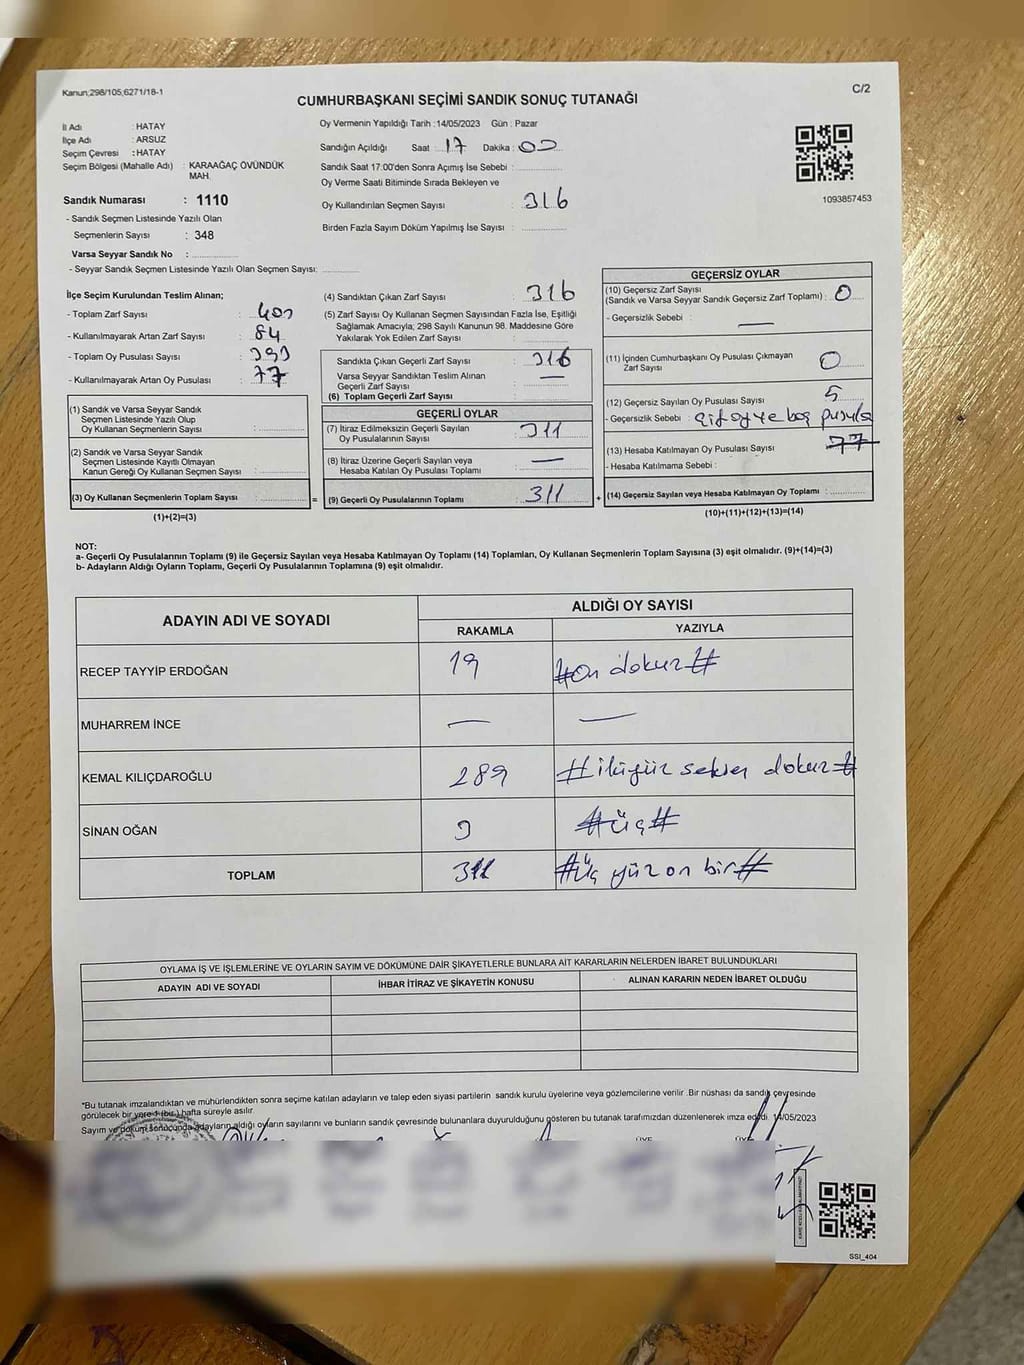 Kanun;298/105;6271/18-1
C/2
CUMHURBAŞKANI SEÇİMİ SANDIK SONUÇ TUTANAĞI
İl Adı : HATAY
İlçe Adı : ARSUZ
Seçim Çevresi : HATAY
Seçim Bölgesi (Mahalle Adı) : KARAAĞAÇ ÖVÜNDÜK MAH.
Sandık Numarası : 1110
- Sandık Seçmen Listesinde Yazılı Olan
Seçmenlerin Sayısı : 348
Varsa Seyyar Sandık No : ..............
- Seyyar Sandık Seçmen Listesinde Yazılı Olan Seçmen Sayısı: ............
Oy Vermenin Yapıldığı Tarih :14/05/2023 Gün : Pazar
Sandığın Açıldığı Saat : 17 Dakika : 00
Sandık Saat 17:00'den Sonra Açımış İse Sebebi : ..............
Oy Verme Saati Bitiminde Sırada Bekleyen ve
Oy Kullandırılan Seçmen Sayısı : 316
Birden Fazla Sayım Döküm Yapılmış İse Sayısı : ..............
1093857453
İlçe Seçim Kurulundan Teslim Alınan;
- Toplam Zarf Sayısı : 400
- Kullanılmayarak Artan Zarf Sayısı : 84
- Toplam Oy Pusulası Sayısı : 393
- Kullanılmayarak Artan Oy Pusulası : 77
(1) Sandık ve Varsa Seyyar Sandık
Seçmen Listesinde Yazılı Olup
Oy Kullanan Seçmenlerin Sayısı : ..............
(2) Sandık ve Varsa Seyyar Sandık
Seçmen Listesinde Kayıtlı Olmayan
Kanun Gereği Oy Kullanan Seçmen Sayısı : ..............
(3) Oy Kullanan Seçmenlerin Toplam Sayısı : ..............
(1)+(2)=(3)
(4) Sandıktan Çıkan Zarf Sayısı : 316
(5) Zarf Sayısı Oy Kullanan Seçmen Sayısından Fazla İse, Eşitliği
Sağlamak Amacıyla; 298 Sayılı Kanunun 98. Maddesine Göre
Yakılarak Yok Edilen Zarf Sayısı : ..............
Sandıkta Çıkan Geçerli Zarf Sayısı : 316
Varsa Seyyar Sandıktan Teslim Alınan
Geçerli Zarf Sayısı : —
(6) Toplam Geçerli Zarf Sayısı : ..............
GEÇERLİ OYLAR
(7) İtiraz Edilmeksizin Geçerli Sayılan
Oy Pusulalarının Sayısı : 311
(8) İtiraz Üzerine Geçerli Sayılan veya
Hesaba Katılan Oy Pusulası Toplamı : —
= (9) Geçerli Oy Pusulalarının Toplamı : 311 +
GEÇERSİZ OYLAR
(10) Geçersiz Zarf Sayısı
(Sandık ve Varsa Seyyar Sandık Geçersiz Zarf Toplamı) : 0
- Geçersizlik Sebebi : —
(11) İçinden Cumhurbaşkanı Oy Pusulası Çıkmayan
Zarf Sayısı : 0
(12) Geçersiz Sayılan Oy Pusulası Sayısı : 5
- Geçersizlik Sebebi : çift oy ve boş pusula
(13) Hesaba Katılmayan Oy Pusulası Sayısı : 77
- Hesaba Katılmama Sebebi :
(14) Geçersiz Sayılan veya Hesaba Katılmayan Oy Toplamı : ............
(10)+(11)+(12)+(13)=(14)
NOT:
a- Geçerli Oy Pusulalarının Toplamı (9) ile Geçersiz Sayılan veya Hesaba Katılmayan Oy Toplamı (14) Toplamları, Oy Kullanan Seçmenlerin Toplam Sayısına (3) eşit olmalıdır. (9)+(14)=(3)
b- Adayların Aldığı Oyların Toplamı, Geçerli Oy Pusulalarının Toplamına (9) eşit olmalıdır.
ADAYIN ADI VE SOYADI
ALDIĞI OY SAYISI
RAKAMLA YAZIYLA
RECEP TAYYİP ERDOĞAN 19 #On dokuz#
MUHARREM İNCE — —
KEMAL KILIÇDAROĞLU 289 #ikiyüz seksen dokuz#
SİNAN OĞAN 3 #üç#
TOPLAM 311 #üç yüz on bir#
OYLAMA İŞ VE İŞLEMLERİNE VE OYLARIN SAYIM VE DÖKÜMÜNE DAİR ŞİKAYETLERLE BUNLARA AİT KARARLARIN NELERDEN İBARET BULUNDUKLARI
ADAYIN ADI VE SOYADI İHBAR İTİRAZ VE ŞİKAYETİN KONUSU ALINAN KARARIN NEDEN İBARET OLDUĞU
*Bu tutanak imzalandıktan ve mühürlendikten sonra seçime katılan adayların ve talep eden siyasi partilerin sandık kurulu üyelerine veya gözlemcilerine verilir .Bir nüshası da sandık çevresinde
görülecek bir yere 1 (bir ) hafta süreyle asılır.
Sayım ve döküm sonucunda adayların aldığı oyların sayılarını ve bunların sandık çevresinde bulunanlara duyurulduğunu gösteren bu tutanak tarafımızdan düzenlenerek imza edildi. 14/05/2023
SSİ_404